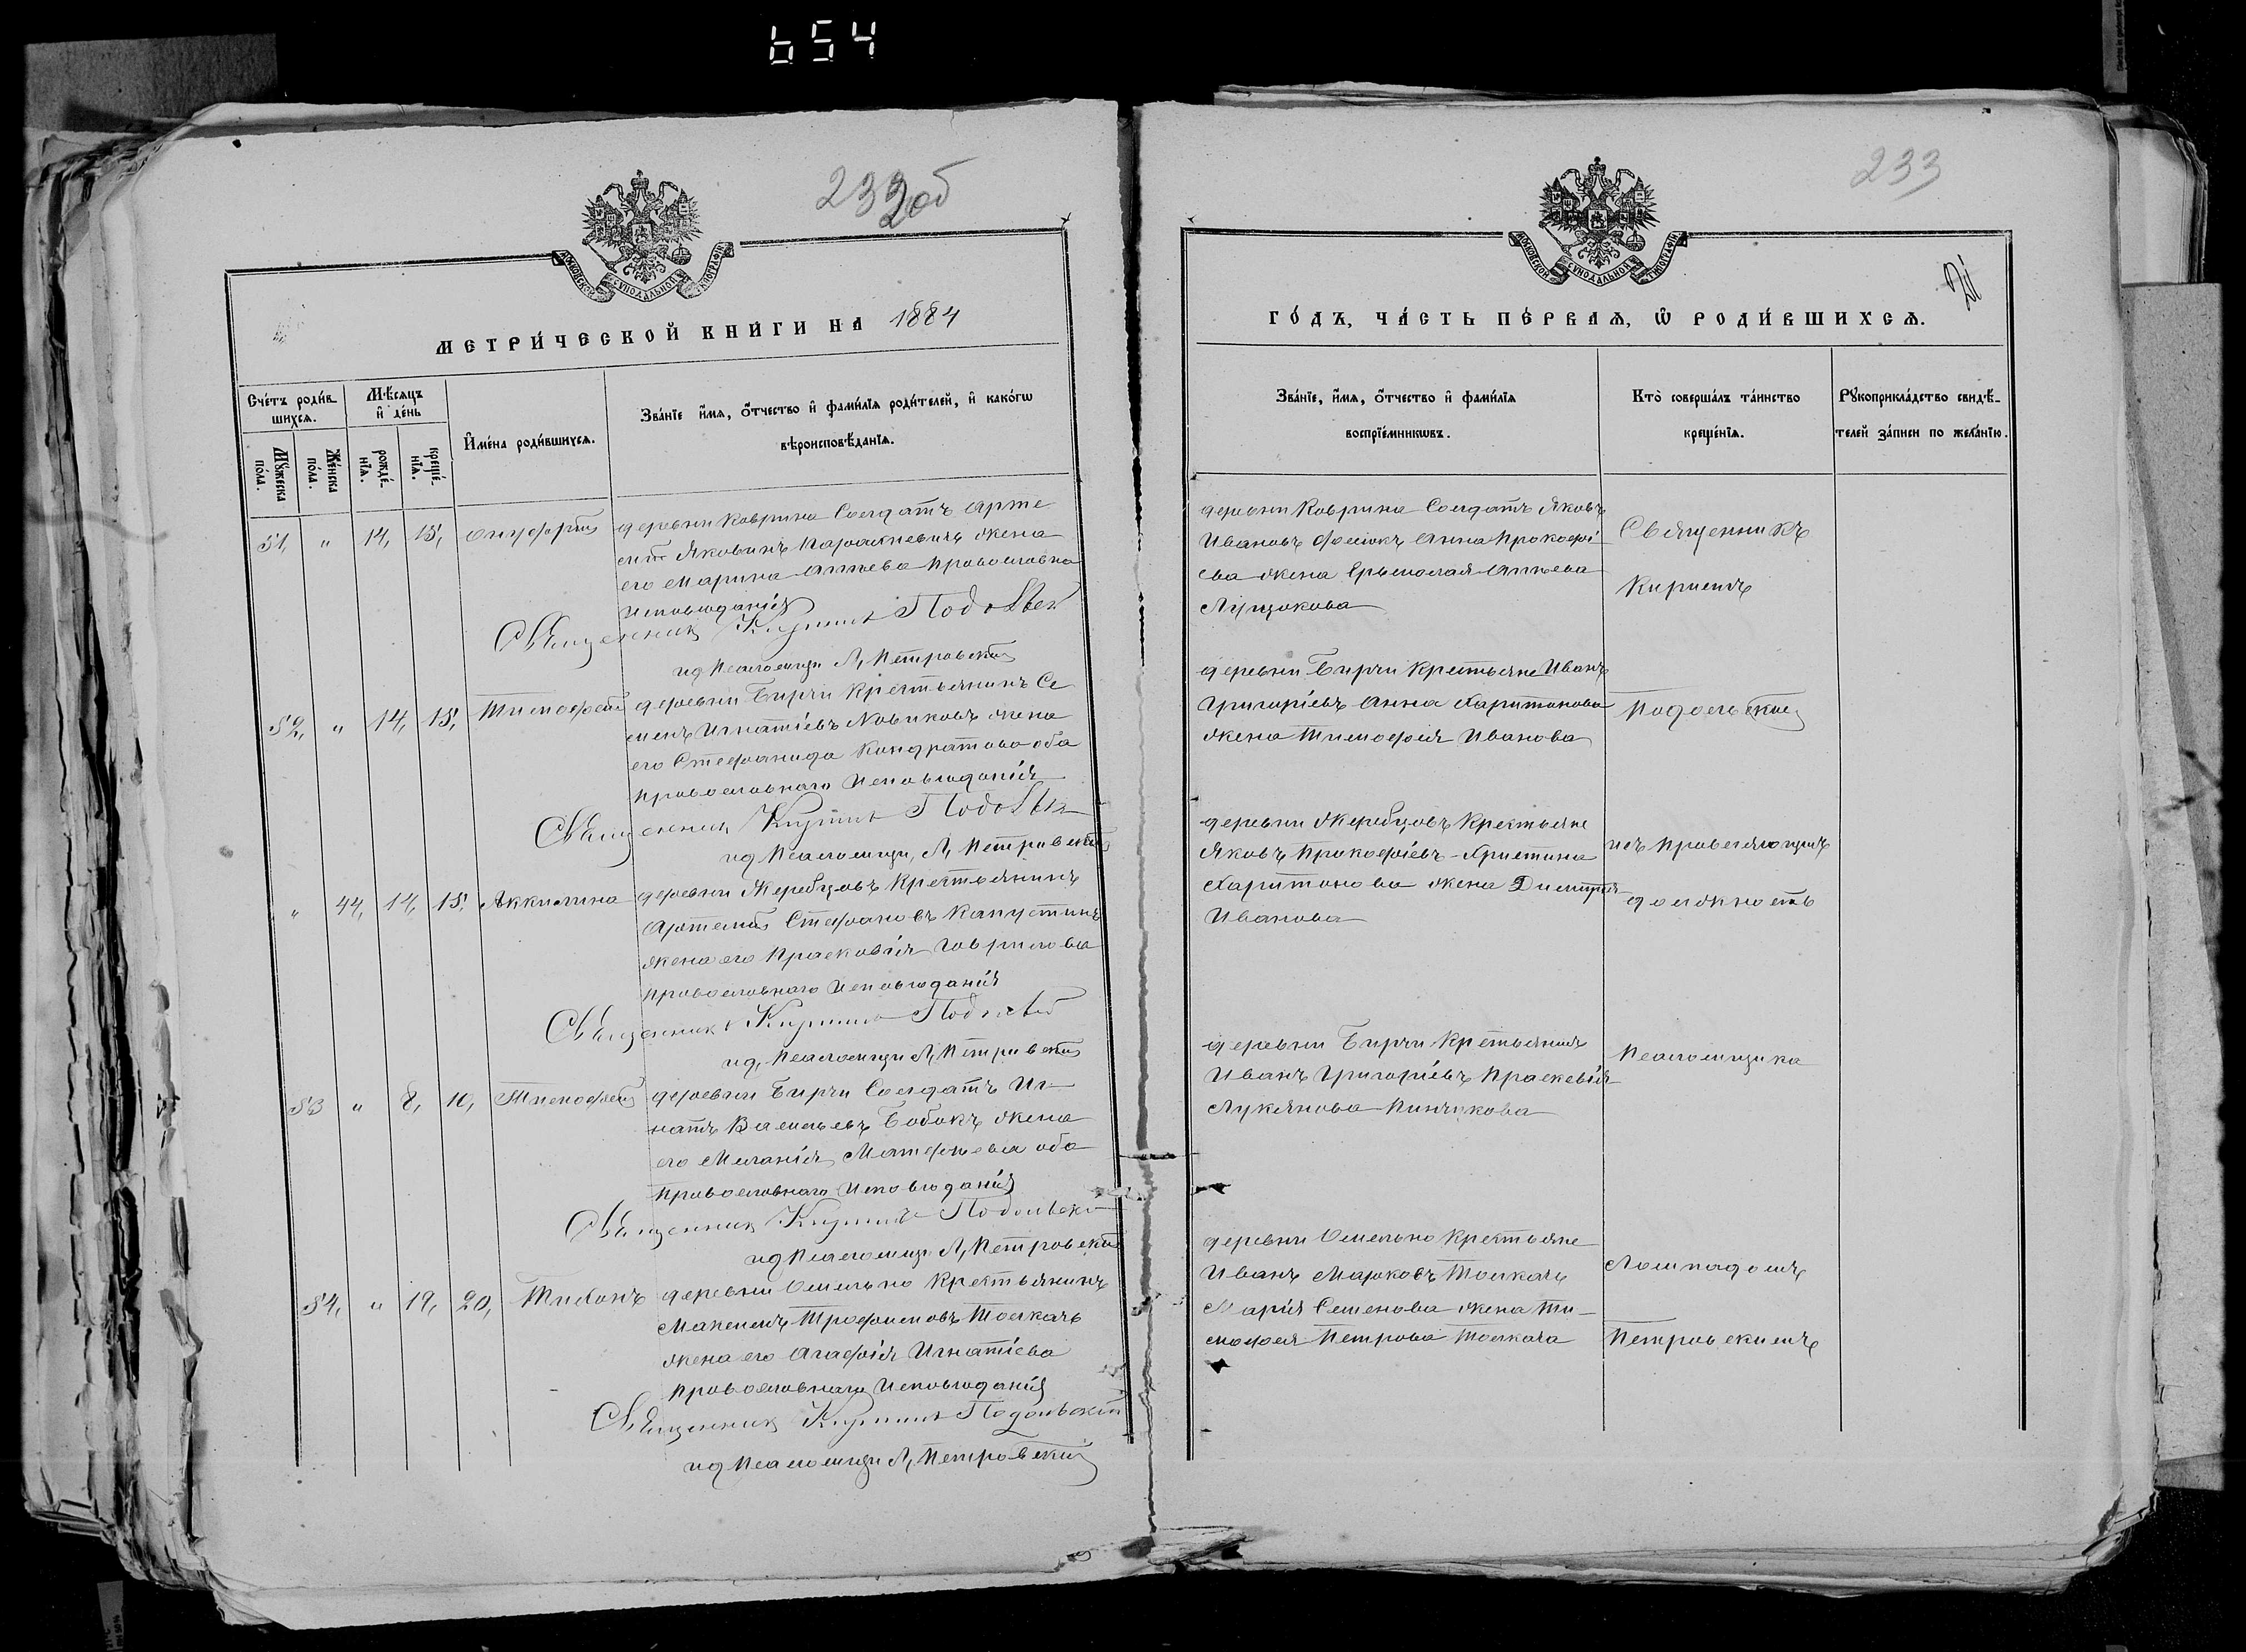 654
232об
МОСКОВСКОЙ СѴНОДАЛЬНОЙ ТИПОГРАФІИ
МЕТРИ́ЧЕСКОЙ КНИ́ГИ НА 1884
Сче́тъ роди́в-
шихся.
Мѣ́сяцъ
и де́нь
Мꙋ́жеска
по́ла.
Же́нска
по́ла.
рожде́-
нїѧ.
креще́-
нїѧ.
Имена́ роди́вшихся.
Зва́нїе имя, о́тчество и фами́лїѧ роди́телей, и како́гѡ
вѣроисповѣ́данїѧ.
51, " 14, 15, Онуфрій деревни Коврина Солдатъ Арте
мій Яковинъ жена
его Марина православна
исповѣданія
Священник Кирилл Подольск
ид Псаломщи Л, Петровскій
52, " 14, 15, Тимофей деревни Бирчи Крестьянинъ Се
менъ Игнатіевъ Новиковъ жена
его Стефанида Кондратова оба
православнаго Исповѣданія
Священник Кирилл Подольск
ид Псаломщи, Л, Петровскій
" 44, 14, 15, Аккилина деревни Жеребцовъ Крестьянинъ
Артемій Стефановъ Капустинъ
жена его Прасковія Гаврилова
православнаго Исповѣданія
Священникъ Кирилл Подольскій
ид, Псаломщи Л, Петровскій
53 " 8, 10, Тимофей деревни Бирчи Солдатъ Иг-
натъ Васильевъ Бобокъ жена
его Меланія Матфеева оба
православнаго Исповѣданія
Священник Кирилъ Подольскі
ид Псаломщ Л, Петровскій
54, " 19, 20, Тихонъ деревни Омельно Крестьянинъ
Максимъ Трофимовъ Толкачъ
жена его Агафія Игнатіева
православнаго Исповѣданія
Священник Кирилл Подольскій
ид Псаломщи Л, Петровскій
233
МОСКОВСКОЙ СѴНОДАЛЬНОЙ ТИПОГРАФІИ
ГО́ДЪ, ЧА́СТЬ ПЕ́РВАѦ, Ѡ РОДИ́ВШИХСѦ.
Зва́нїе, имя, о́тчество и фами́лїѧ
воспрїе́мникѡвъ.
Кто̀ соверша́лъ та́инство
креще́нїѧ.
Рꙋкоприкла́дство свидѣ́-
телей за́писи по жела́нїю.
деревни Коврина Солдатъ Яковъ
Ивановъ Анна Прокофі
ева жена Ермолая
деревни Бирчи Крестьяне Иванъ
Григоріевъ Анна Харитонова
жена Тимофея Иванова
деревни Жеребцовъ Крестьяне
Яковъ Прокофіевъ Христина
Харитонова жена Димитрія
Иванова
деревни Бирчи Крестьянинъ
Иванъ Григоріевъ Прасковія
Лукянова Пинчукова
деревни Омельно Крестьяне
Иванъ Марковъ Толкачъ
Марія Семенова жена Ти-
мофея Петрова Толкача
Священникъ
Кирилъ
Подольскій
исправляющимъ
должность
Псаломщика
Петровскимъ